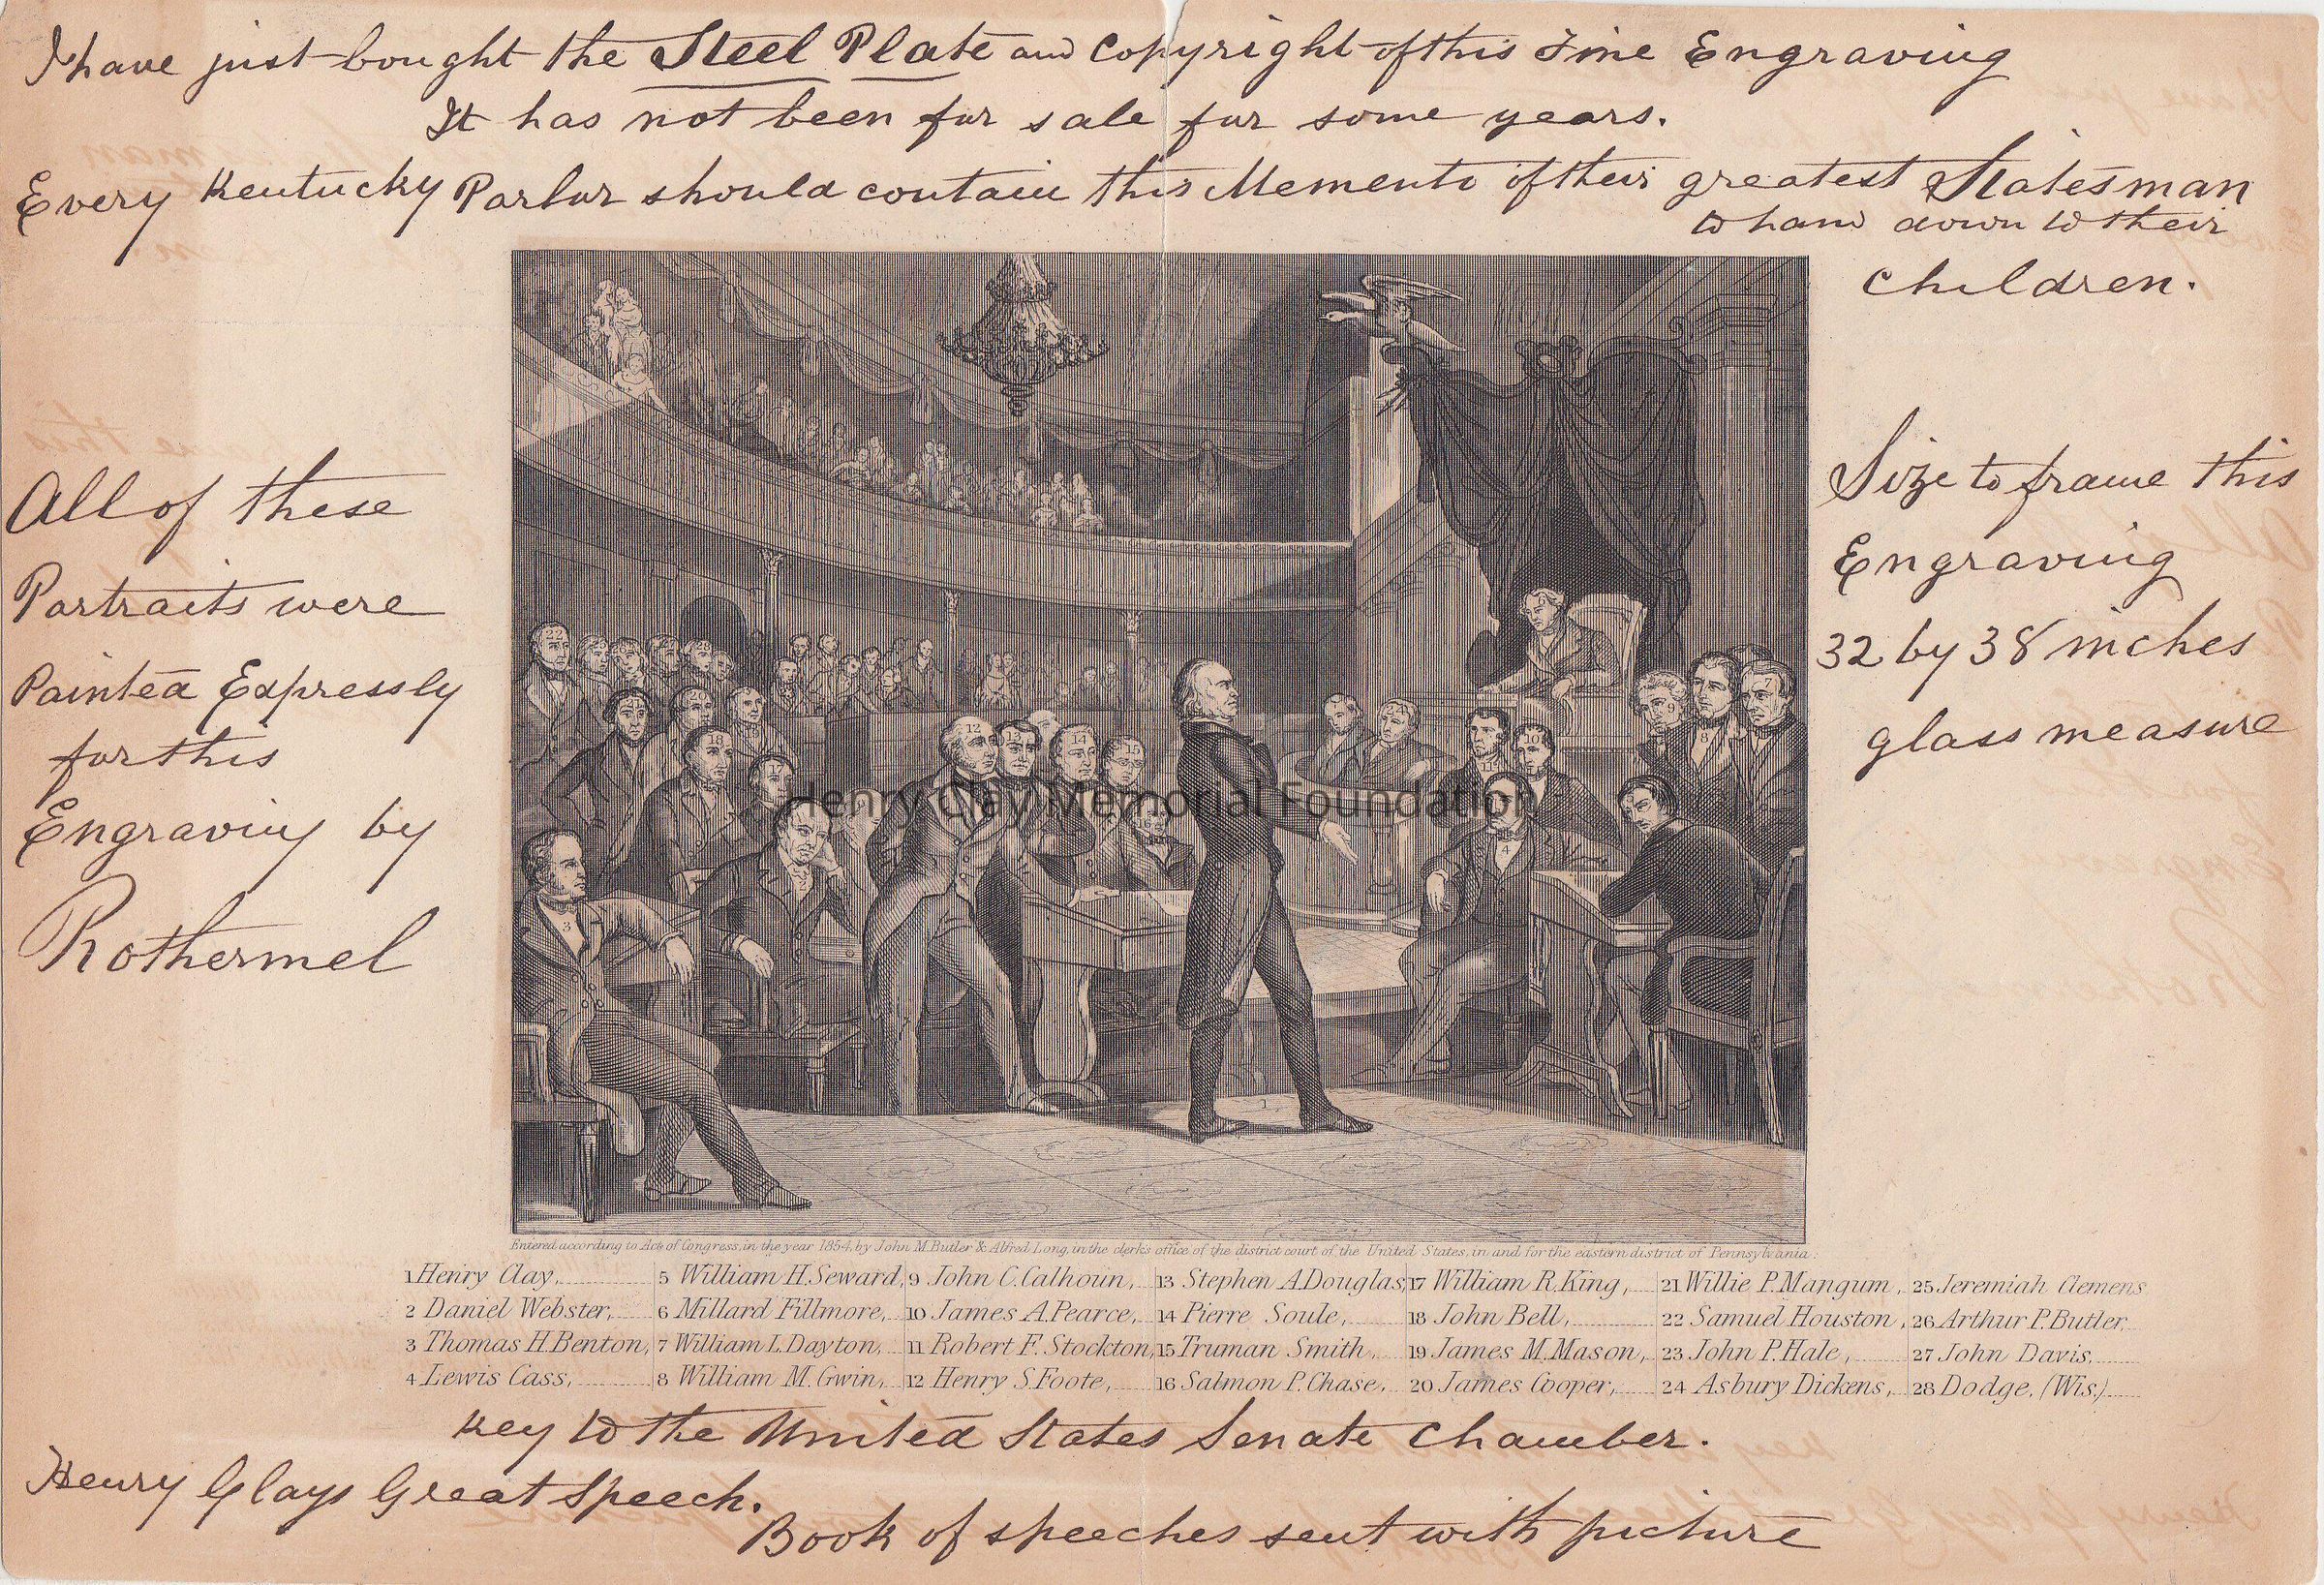 I have just bought the Steel Plate and Copyright of this Fine Engraving
It has not been for sale for some years.
Every Kentucky Parlor should contain this Memento of their greatest Statesman
to hand down to their
children.
All of these
Portraits were
Painted Expressly
for this
Engraving by
Rothermel
Size to frame this
Engraving
32 by 38 inches
glass measure
Henry Clay Memorial Foundation
Entered according to Act of Congress, in the year 1854, by John M. Butler & Alfred Long, in the clerk's office of the district court of the United States, in and for the eastern district of Pennsylvania.
1 Henry Clay, 5 William H. Seward, 9 John C. Calhoun, 13 Stephen A. Douglas, 17 William R. King, 21 Willie P. Mangum, 25 Jeremiah Clemens
2 Daniel Webster, 6 Millard Fillmore, 10 James A. Pearce, 14 Pierre Soule, 18 John Bell, 22 Samuel Houston, 26 Arthur P. Butler.
3 Thomas H. Benton, 7 William L. Dayton, 11 Robert F. Stockton, 15 Truman Smith, 19 James M. Mason, 23 John P. Hale, 27 John Davis,
4 Lewis Cass, 8 William M. Gwin, 12 Henry S. Foote, 16 Salmon P. Chase, 20 James Cooper, 24 Asbury Dickens, 28 Dodge, (Wis.)
Key to the United States Senate Chamber.
Henry Clays Great Speech.
Book of speeches sent with picture